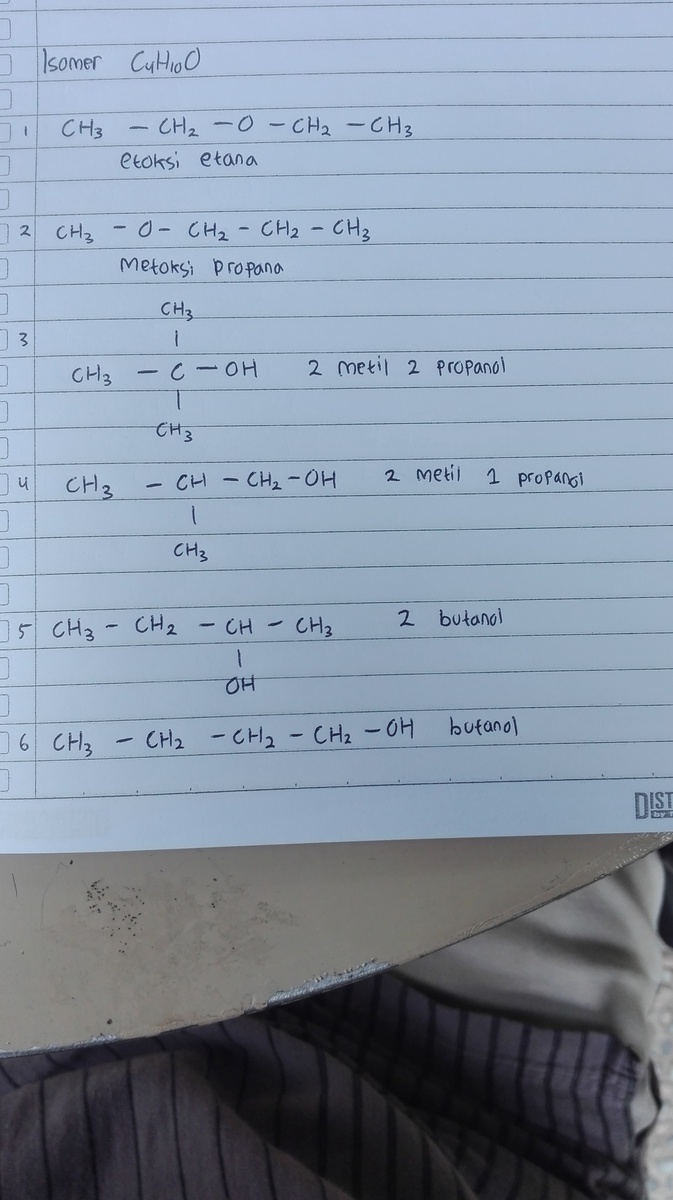 Isomer C4H10O
1 CH3 – CH2 – O – CH2 – CH3
etoksi etana
2 CH3 – O – CH2 – CH2 – CH3
Metoksi propana
CH3
|
3
CH3 – C – OH 2 metil 2 propanol
|
CH3
4 CH3 – CH – CH2 – OH 2 metil 1 propanol
|
CH3
5 CH3 – CH2 – CH – CH3 2 butanol
|
OH
6 CH3 – CH2 – CH2 – CH2 – OH butanol
DIST